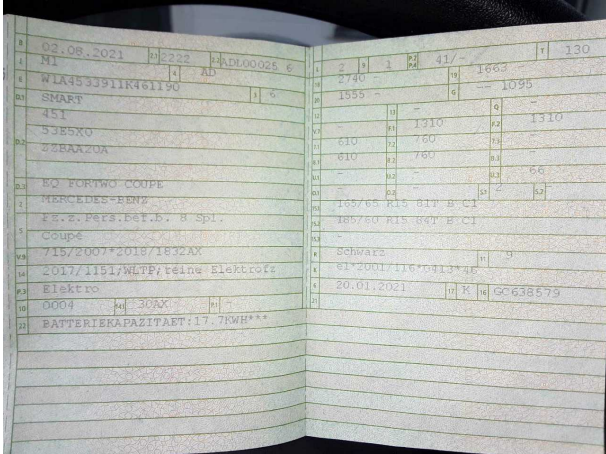 B 02.08.2021 2.1 2222 2.2 ADL00025 6
J M1 4 AD
E W1A4533911K461190 3 6
D.1 SMART
451
D.2 53E5X0
ZZBAA20A
D.3 EQ FORTWO COUPE
2 MERCEDES-BENZ
5 Fz.z.Pers.bef.b. 8 Spl.
Coupé
V.9 715/2007*2018/1832AX
14 2017/1151;WLTP;reine Elektrofz
P.3 Elektro
10 0004 14.1 30AX P.1 -
22 BATTERIEKAPAZITAET:17.7KWH***
L 2 9 1 P.2 P.4 41/- T 130
18 2740 - 19 1663 -
20 1555 - G -- 1095
12 - 13 - Q -
V.7 - F.1 1310 F.2 1310
7.1 610 7.2 760 7.3 -
8.1 610 8.2 760 8.3 -
U.1 - U.2 - U.3 66
O.1 - O.2 - S.1 2 S.2 -
15.1 165/65 R15 81T B C1
15.2 185/60 R15 84T B C1
15.3 -
R Schwarz 11 9
K e1*2001/116*0413*46
6 20.01.2021 17 K 16 GC638579
21